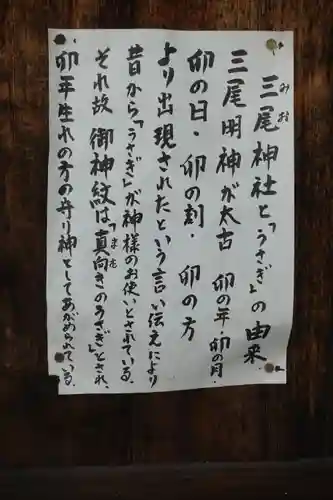 三尾神社と「うさぎ」の由来
みお
三尾明神が太古 卯の年・卯の月・
卯の日・卯の刻・卯の方
より出現されたという言い伝えにより
昔から「うさぎ」が神様のお使いとされている。
それ故 御神紋は「真向きのうさぎ」とされ、
まむ
卯年生れの方の守り神としてあがめられている。